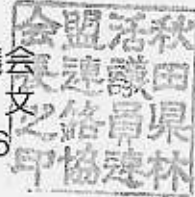 秋田県林
活議員連
盟連絡協
会長之印
会文